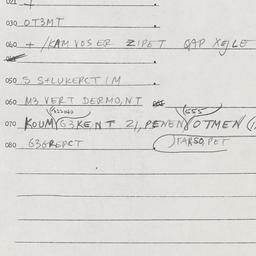 021
030 OT3MT
040 + /KAM VOS ER ZIPET QAP
050 S S+LUKEPCT I M
060 M3 VERT DERMO, NT
070 KOUM G3KE, NT 21, PENEN OTMEN
555
080 G3GREPCT TARSO, PET